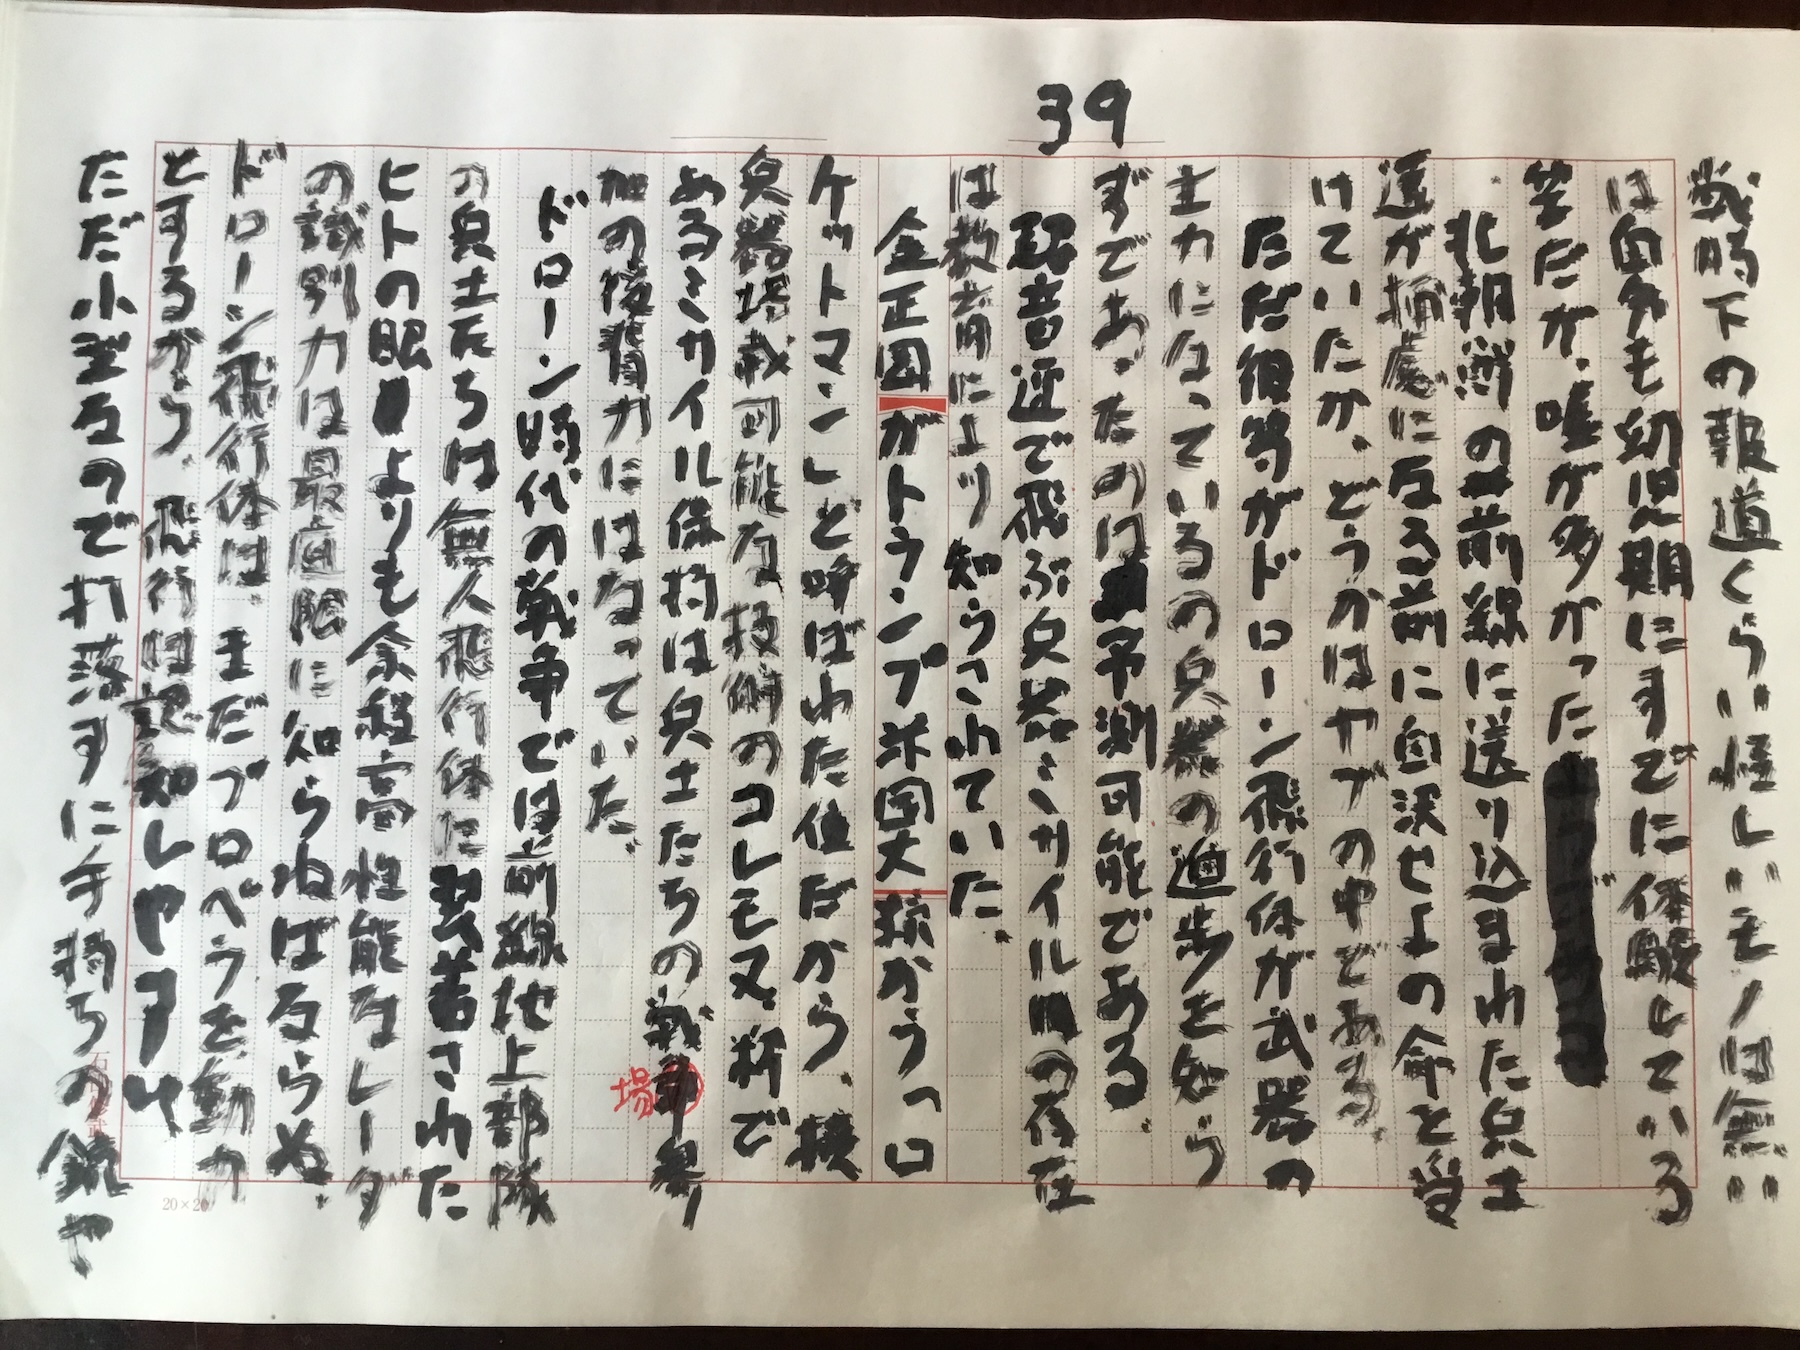 39
戦時下の報道くらい怪しいモノは無い
は自分も幼児期にすでに体験している
筈だが、嘘ケ多がった
北朝鮮の 前線に送り込まれた兵士
達が捕虜に なる前に自決せよの命を受
けていたか、どうかはヤブのやどある。
ただ彼等がドローン飛行体が武器の
主力になっているの兵器の進歩を知ら
ずであったのは 予測可能である。
超音速で飛ぶ兵器ミサイル の存在
は教育により知らされていた。
金正恩 がトランプ米国大 領から「ロ
ケットマン」と呼ばれた位だから、核
兵器搭載可能な技術のコレも又、所で
あるミサイル保持は兵士たちの戦 場参
加の後背力にはなっていた。
ドローン時代の戦争では前線地上部隊
の兵士たちは無人飛行体に 装着された
ヒトの眼 よりも余程高性能なレーダ
の識別力は最低限に知らねばならぬ。
ドローン飛行体は、まだプロペラを動力
とするから、飛行は認知しやすい
ただ小型なので打落すに手持ちの銃や
20×20